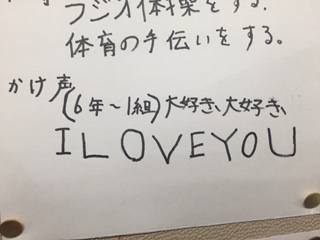 ラジオ体操をする.
体育の手伝いをする。
かけ声
(6年～1組)大好き、大好き、
I LOVE YOU